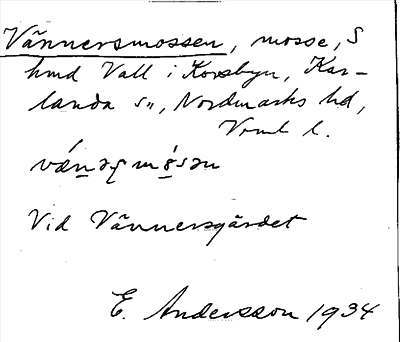 Vännersmossen, mosse, S
hmd Vall i Korsbyn, Kar-
landa sn, Nordmarks hd,
Vrml l.
mǿsən
Vid Vännersgärdet
E. Andersson 1934